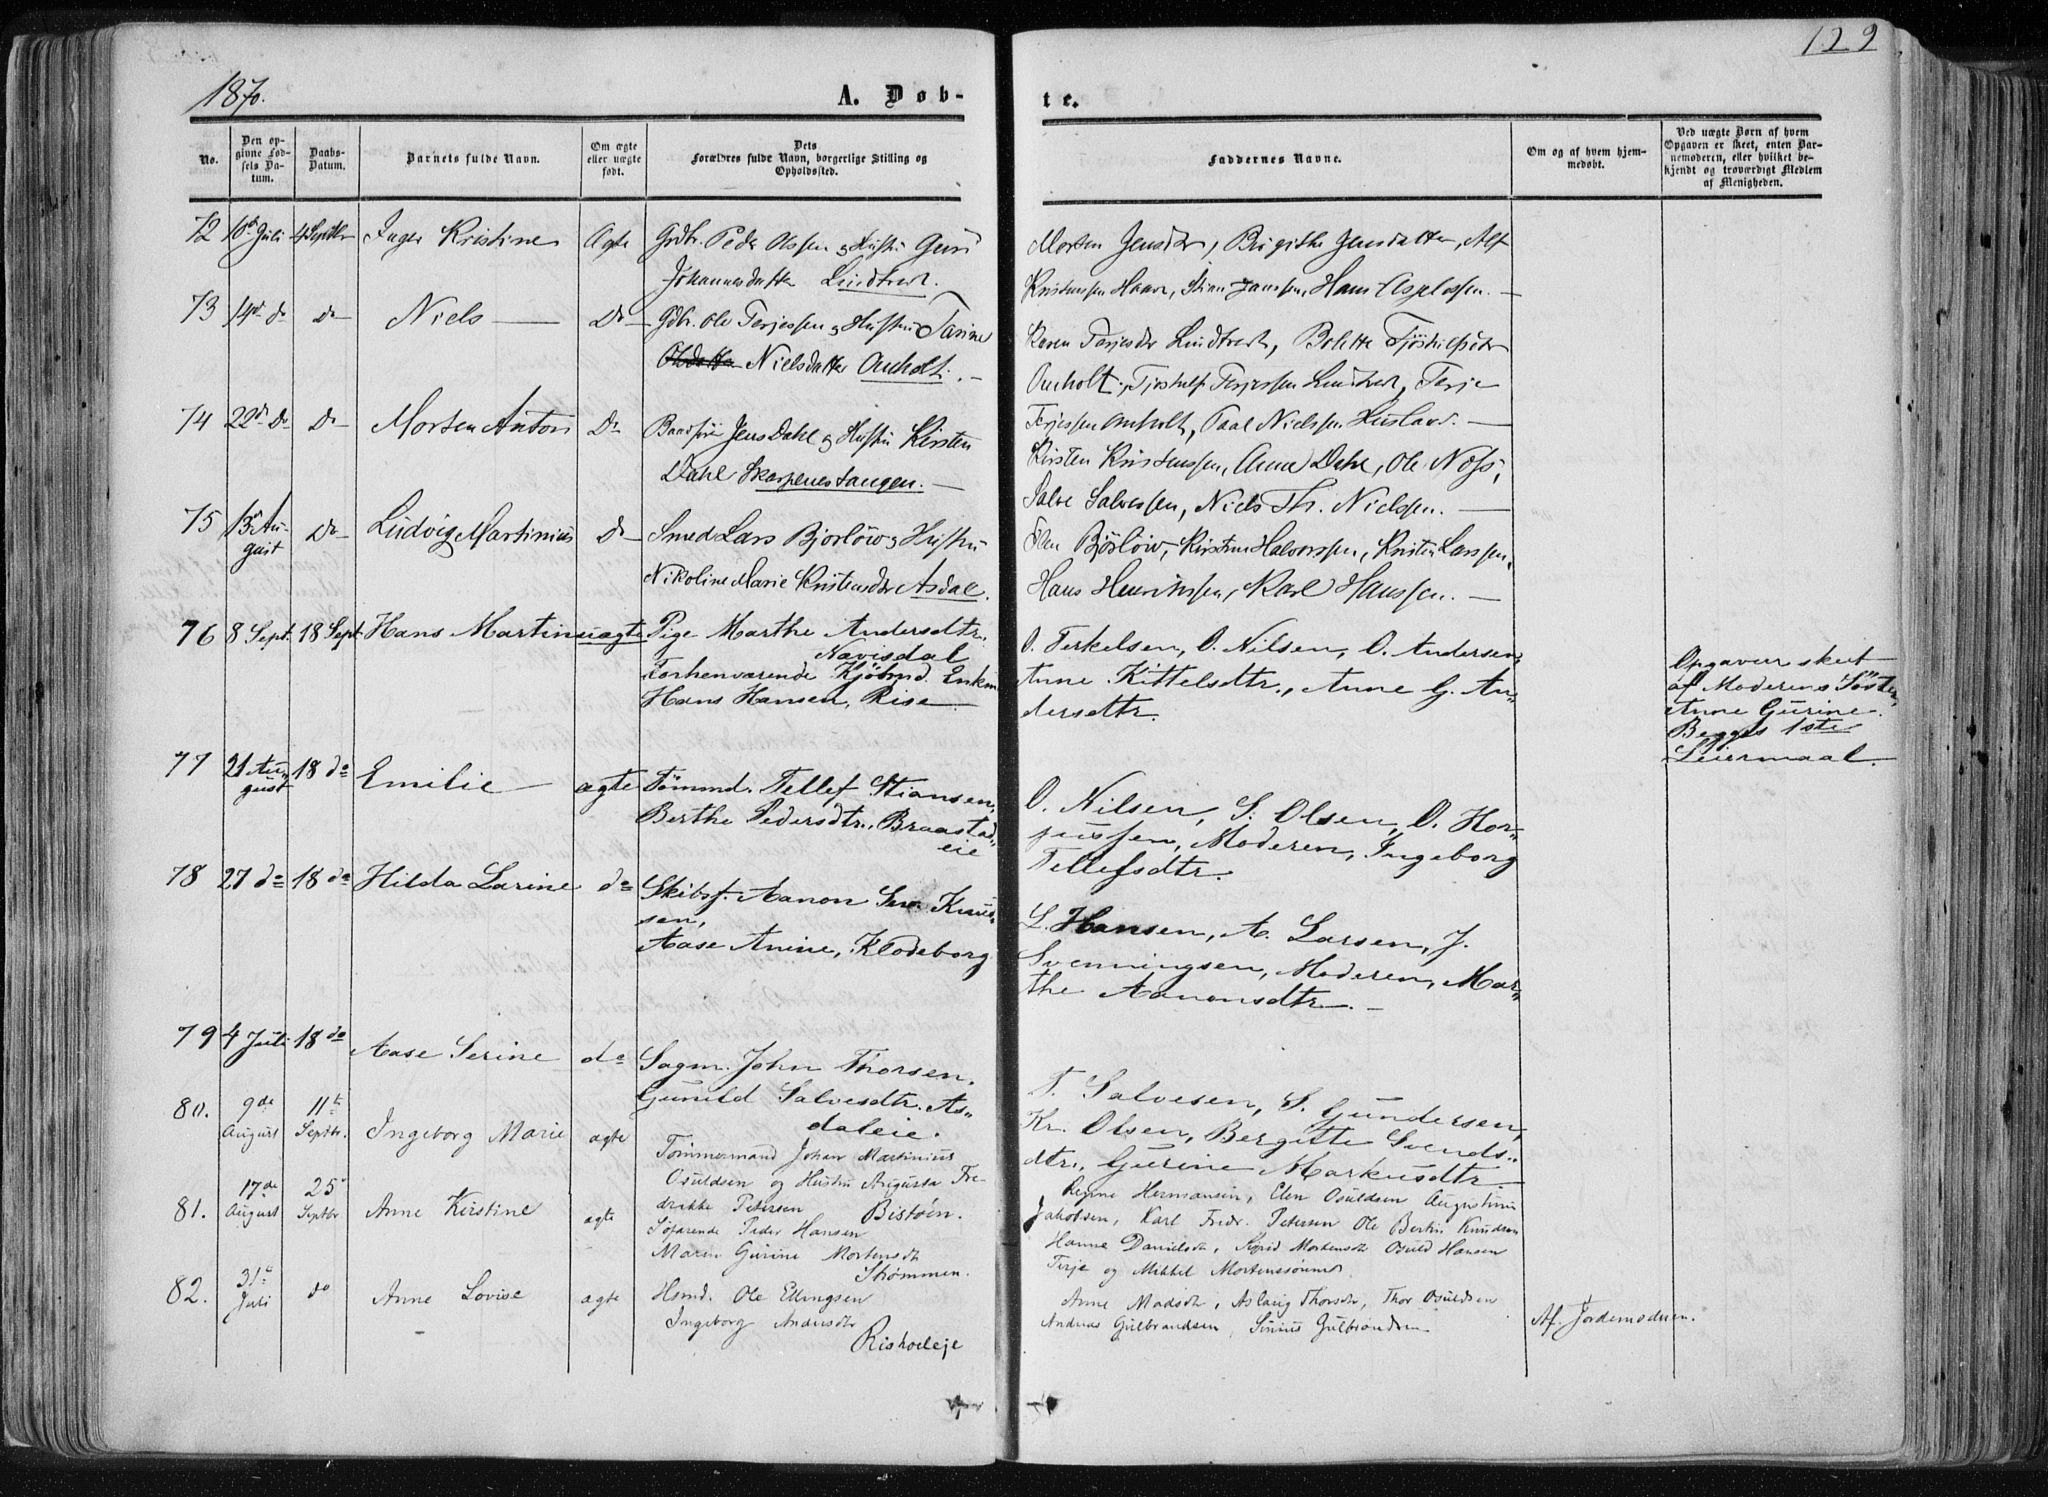 129
1870.
A. Døb-
te.
No.
Den op-
givne Fød-
sels Da-
tum.
Daabs-
Datum.
Barnets fulde Navn.
Om ægte
eller uægte
født.
Dets
Forældres fulde Navn, borgerlige Stilling og
Opholdssted.
Faddernes Navne.
Om og af hvem hjem-
medøbt.
Ved uægte Børn af hvem
Opgaven er skeet, enten Bar-
nemoderen, eller hvilket be-
kjendt og troværdigt Medlem
af Menigheden.
72 Juli 4 Septbr Inger Kristine Ægte Gdbr. Peder Olssen og Hustru Guri
Johannesdatter Lindtveit.
Morten Jensdtr, Birgithe Jensdatter, Alf
Kristenssen Haave, Stian Janssen, Hans Asplassen. —
73 14de do do Niels — Do Gdbr. Ole Terjessen og Hustru Tarine
Olsdatter Nielsdatter Omholt. —
Karen Terjesdtr Lindtveit, Bolette
Omholt, Terjessen Lindtveit, Terje
Terjessen Omholt, Paal Nielssen —
74 22de do do Morten Anton Do Jens Dahl og Hustru Kirsten
Dahl Skarpenestangen. —
Kirsten Kristenssen, Anna Dahl, Ole Næss,
Salve Salvessen, Niels Th. Nielssen. —
75 13de Au-
gust do Ludvig Martinius do Smed Lars Bjorløw og Hustru
Nikoline Marie Kristensdtr Asdal.
Bjørløw, Kirsten Halvorssen, Kristen Larssen,
Hans Henrikssen, Karl Hanssen. —
76 8 Sept. 18 Sept. Hans Martin uægte Pige Marthe Andersdtr.
Navisdal
Forhenværende Kjöbmd. Enkm
Hans Hansen, Rise
O. Terkelsen, O. Nilsen, O. Andersen,
Anne Kittelsdtr., Anne G. An-
dersdtr.
Opgaven skeet
af Moderens Søster,
Anne Gurine.
Begges 1ste
Leiermaal.
77 21 Au-
gust 18 do Emilie — ægte Tømmd. Tellef Stiansen,
Berthe Pedersdtr., Braastad-
eie
O. Nilsen, S. Olsen, O. Hor-
jussen, Moderen, Ingeborg
Tellefsdtr.
78 27 do 18 do Hilda Larine do Skibsf. Aanon Knud-
sen,
Aase Anine, Klodeborg
L. Hansen, A. Larsen, J.
Svenningsen, Moderen, Mar-
the Aanonsdtr. —
79 4 Juli 18 do Aase Serine do Sagm. John Thorsen,
Gunild Salvesdtr. As-
daleie.
T. Salvesen, S. Gundersen,
Kr. Olsen, Bergitte Svends-
dtr., Gurine Markusdtr.
80. 9de
August 11te
Septbr. Ingeborg Marie ægte Tømmermand Johan Martinius
Osuldsen og Hustru Augusta Fre-
drikke Petersen Bistøen.
Regine Hermansen, Elen Osuldsen Augustinu
Jakobsen, Karl Fredr. Petersen Ole Bertin Knudsen
81. 17de
August 25
Septbr Anne Kirstine ægte Søfarende Peder Hansen
Maren Gurine Mortensdt
Strømmen.
Hanna Danielsdt, Sigrid Mortensdt Osuld Hansen
Terje og Mikkel Mortenssønner
82. 31te
Juli do Anne Lovise ægte Hsmd. Ole Ellingsen
Ingeborg Andersdtr
Risholeje
Anne Madsdt, Aslaug Thorsdtr, Thor Osuldsen
Andreas Gulbrandsen, Sinius Gulbrandsen
Af Jordemoderen.